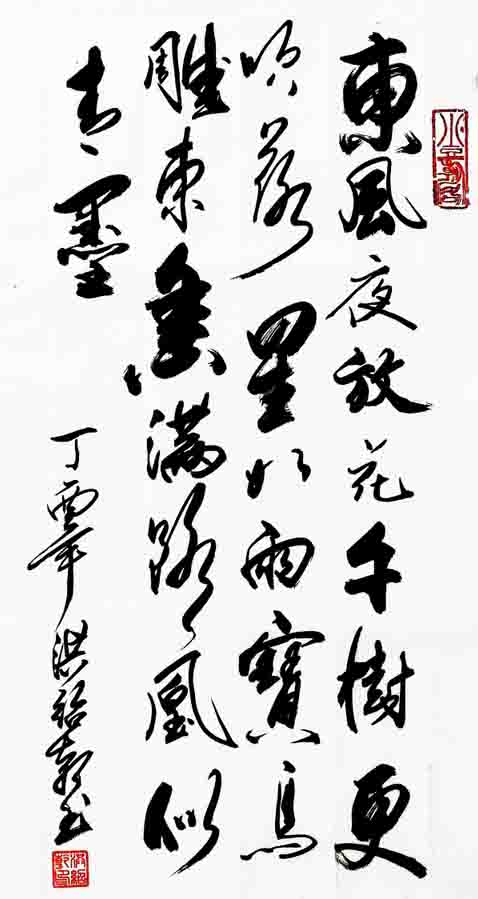 東風夜放花千樹更
吹落星如雨寶馬
雕車香滿路凰似
墨
丁酉年洪書